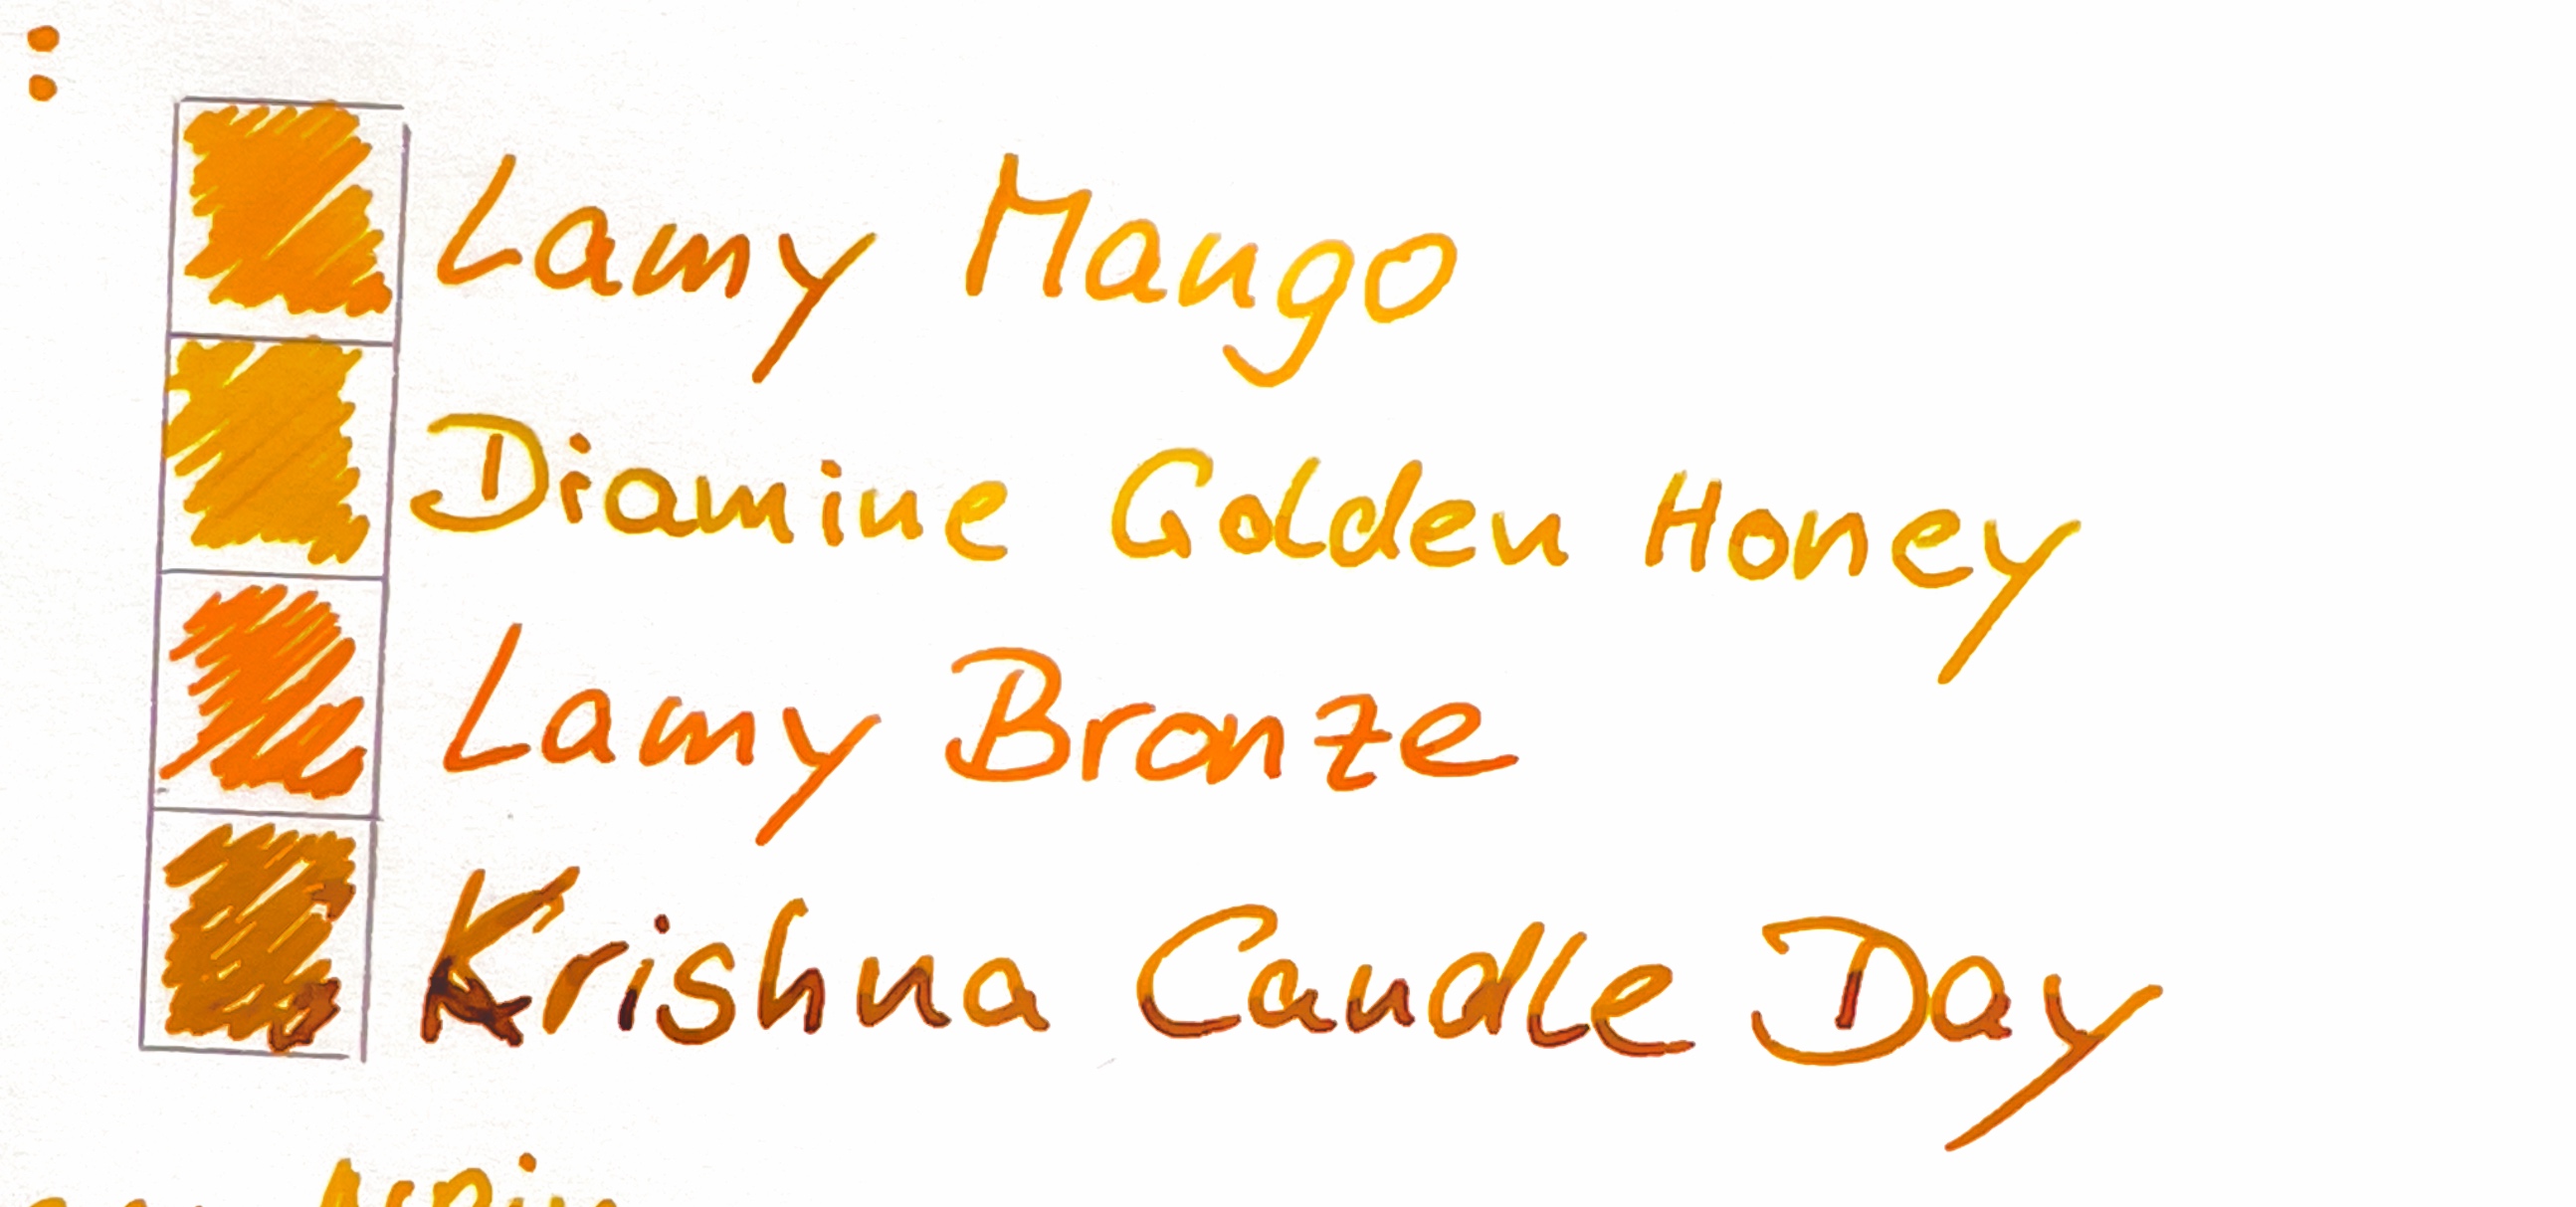 :
Lamy Mango
Diamine Golden Honey
Lamy Bronze
Krishna Candle Day